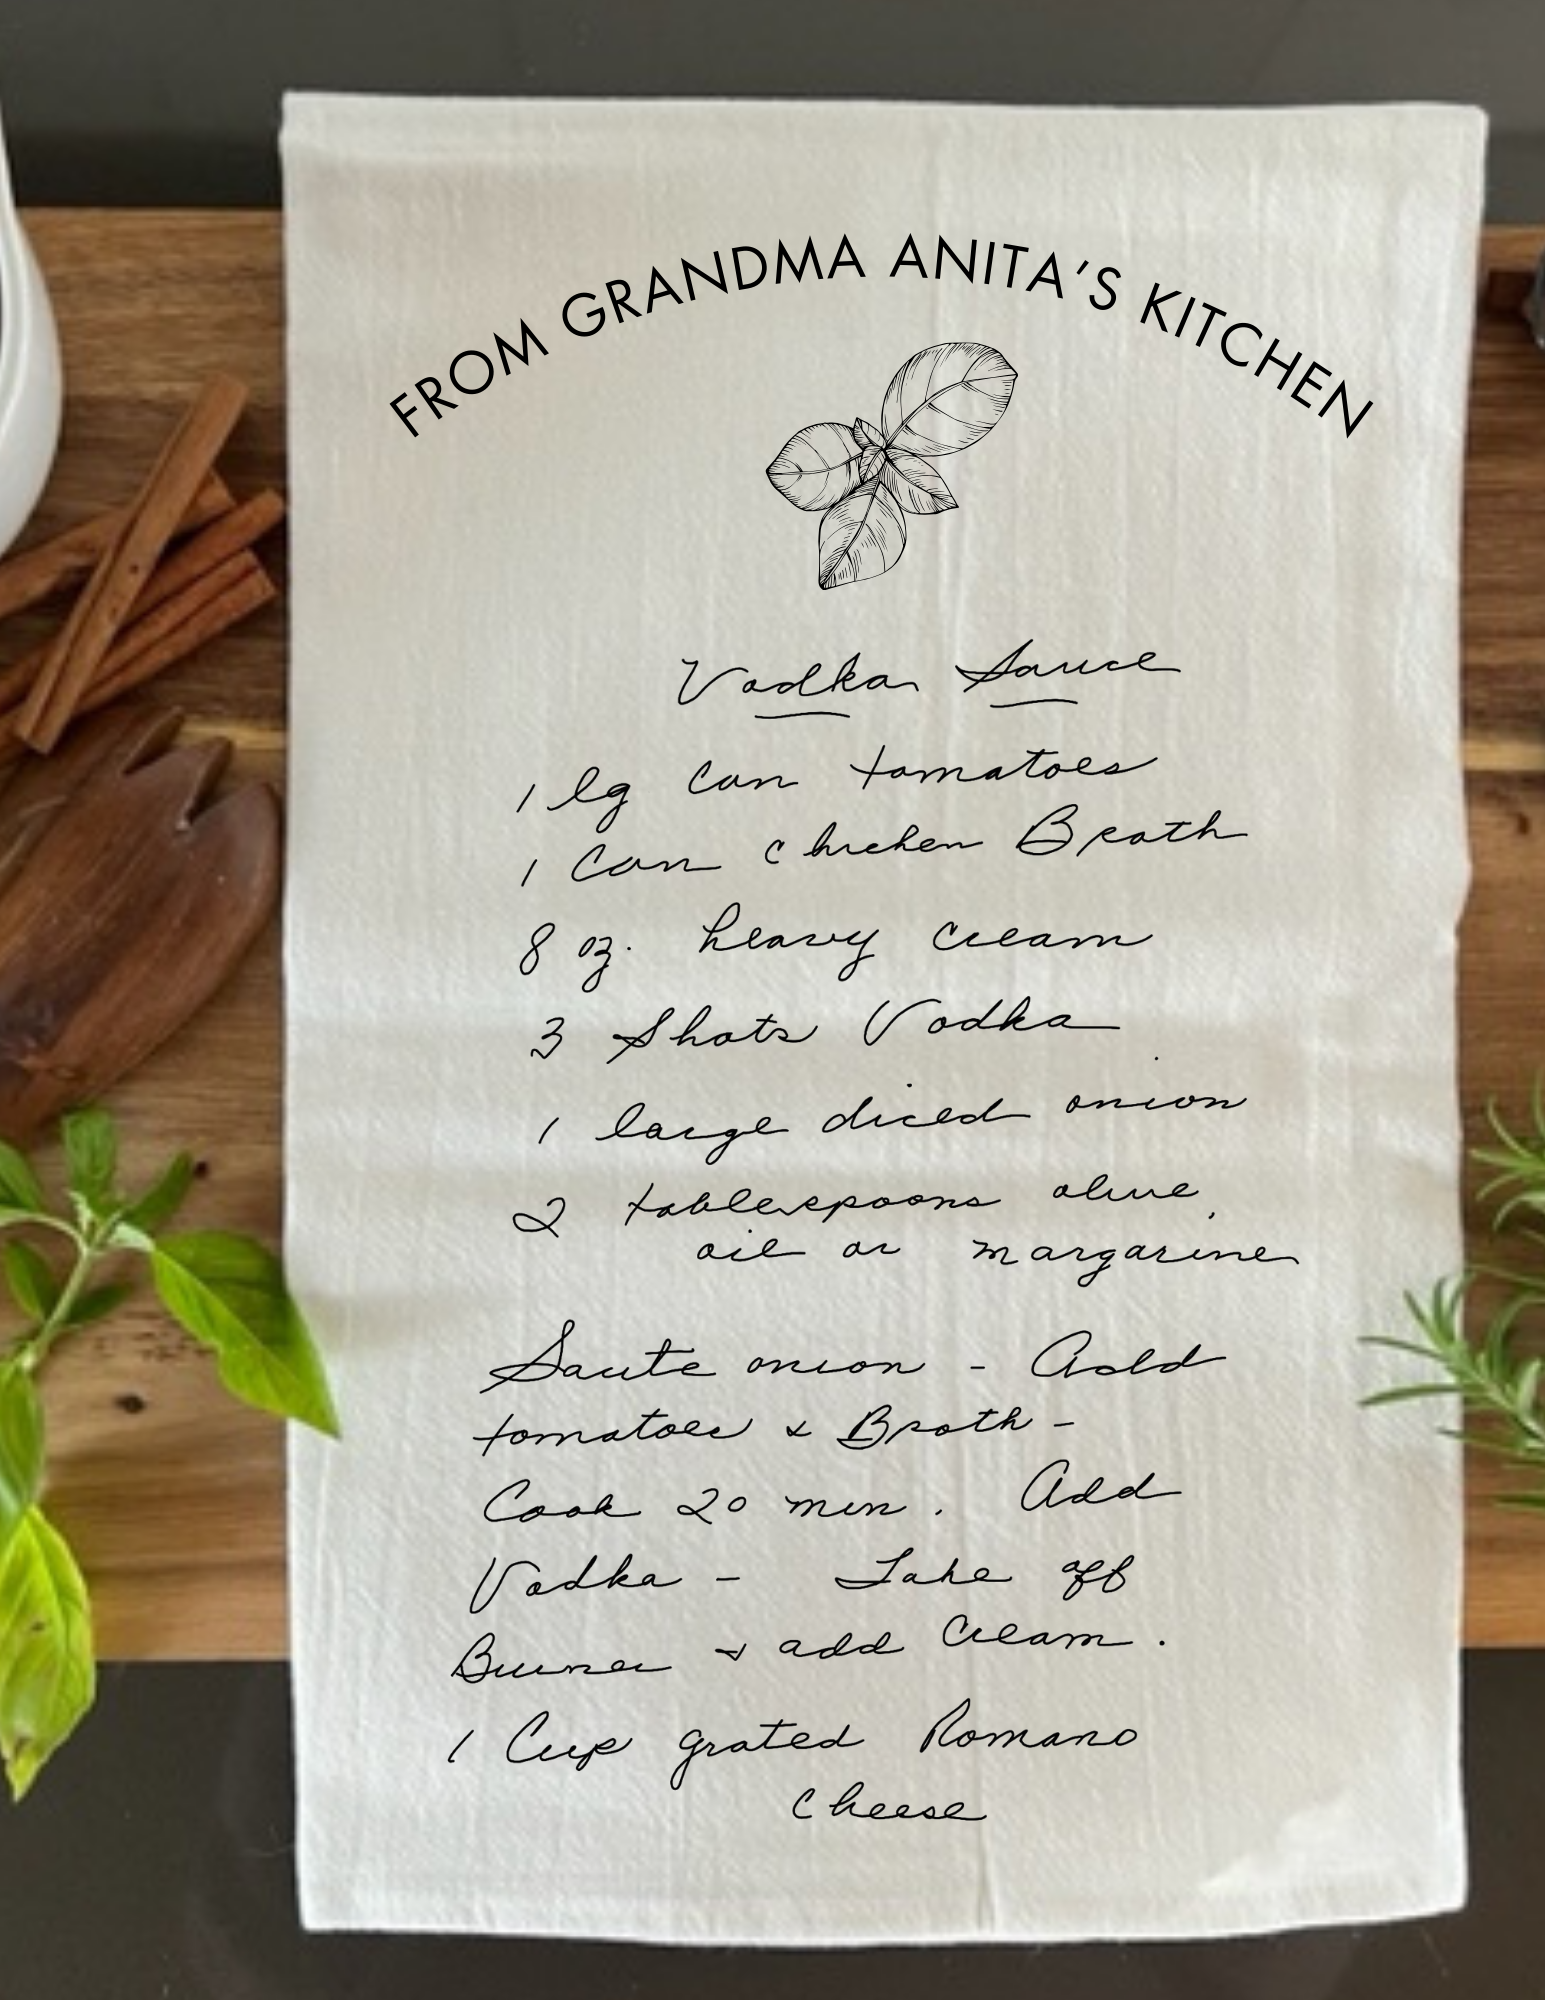 FROM GRANDMA ANITA'S KITCHEN
Vodka Sauce
1 lg can tomatoes
1 Can chicken Broth
8 oz. heavy cream
3 Shots Vodka
1 large diced onion
2 tablespoons olive
oil or margarine
Saute onion - Add
tomatoes & Broth -
Cook 20 min. Add
Vodka - Take off
Burner & add Cream.
1 Cup grated Romano
Cheese